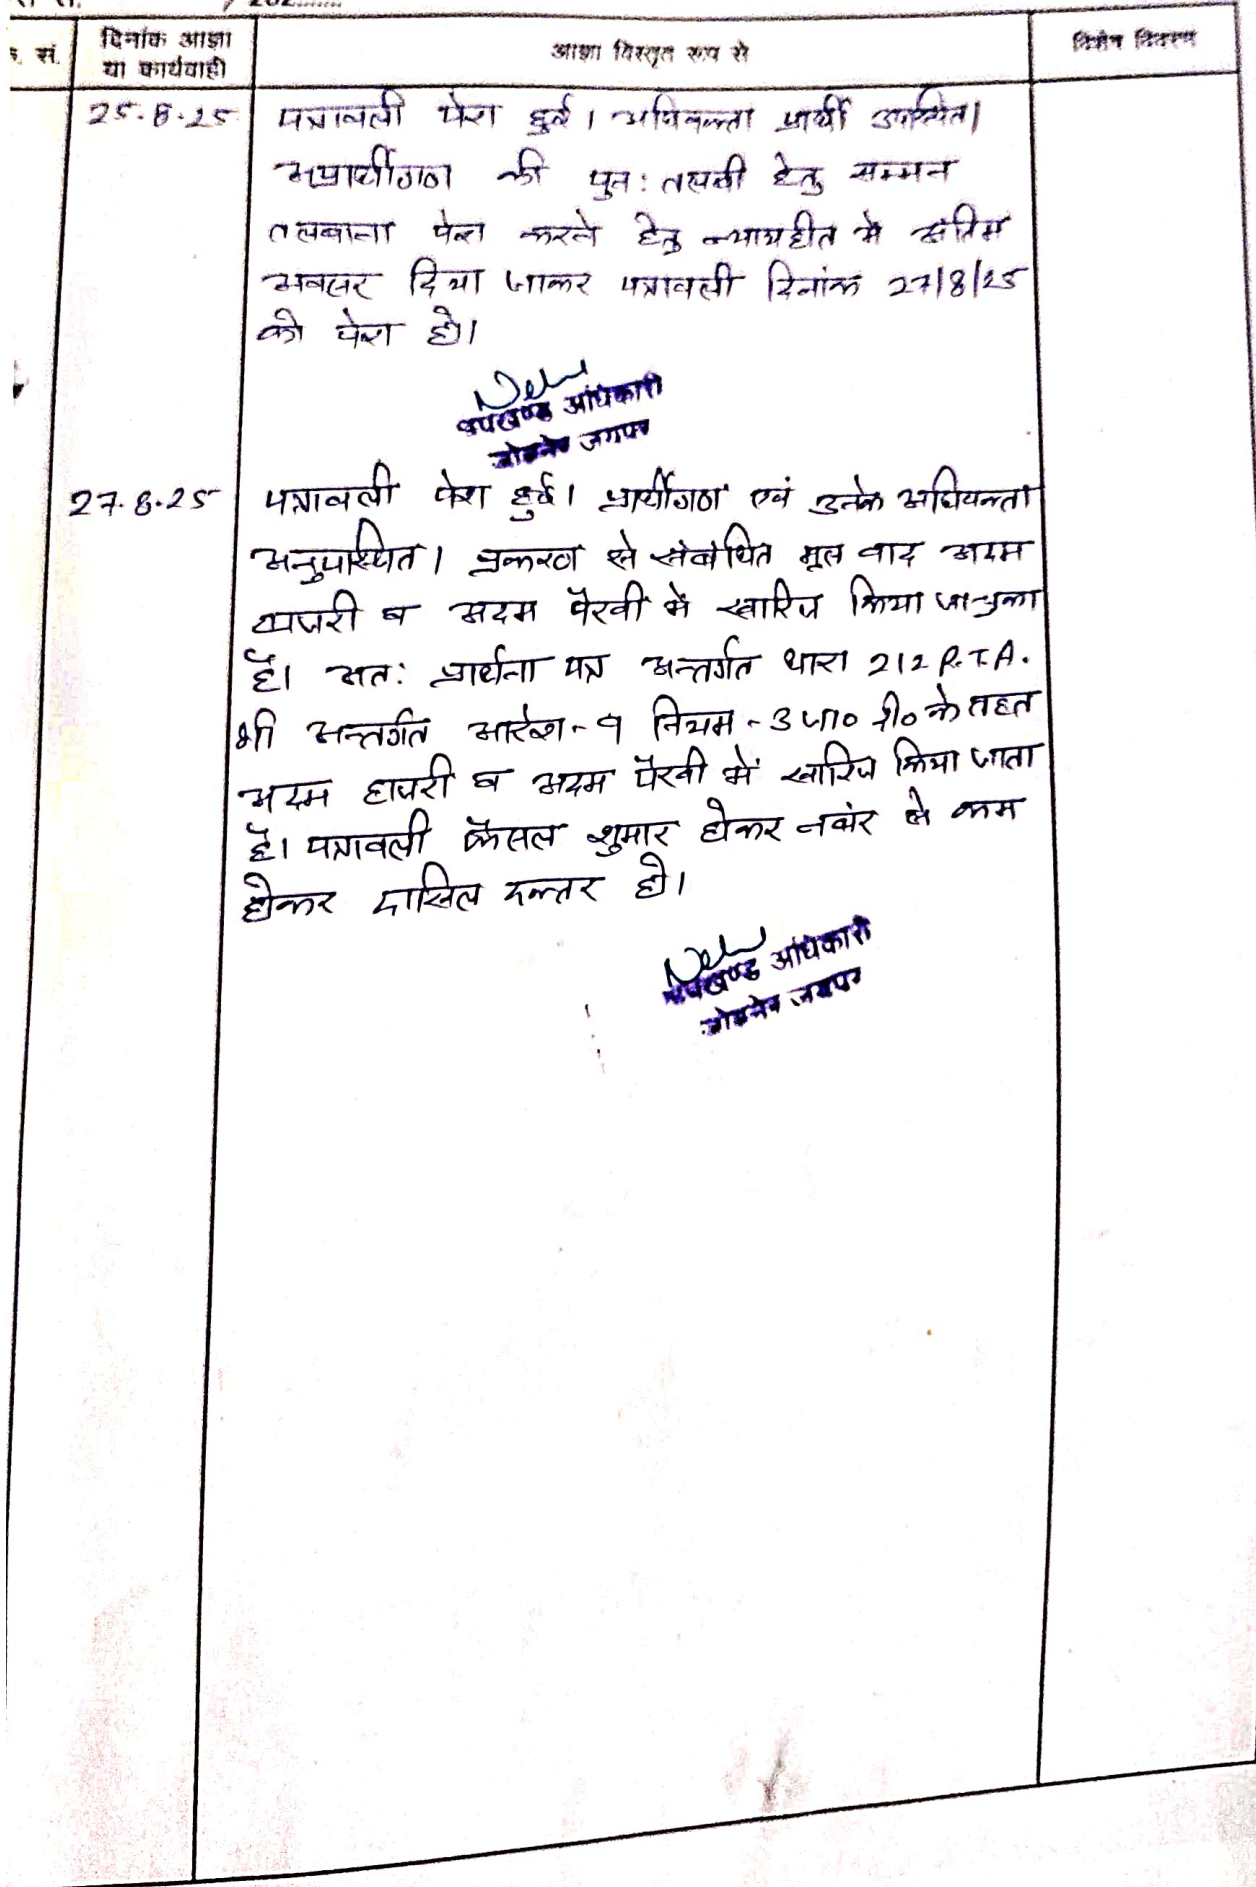 क्र. सं.
दिनांक आज्ञा
या कार्यवाही
आज्ञा विस्तृत रूप से
विशेष विवरण
25.8.25
पत्रावली पेश हुई। अधिवक्ता प्रार्थी उपस्थित।
अप्रार्थीगण की पुनः तलबी हेतु सम्मन
तलबाना पेश करने हेतु न्यायहीत मे अंतिम
अवसर दिया जाकर पत्रावली दिनांक 27/8/25
को पेश हो।
उपखण्ड अधिकारी
जोबनेर जयपुर
27.8.25
पत्रावली पेश हुई। प्रार्थीगण एवं उनके अधिवक्ता
अनुपस्थित। प्रकरण से संबंधित मूल वाद अदम
हाजरी व अदम पैरवी मे खारिज किया जा चुका
है। अतः प्रार्थना पत्र अन्तर्गत धारा 212 R.T.A.
भी अन्तर्गत आदेश-9 नियम-3 जा० दी० के तहत
अदम हाजरी व अदम पैरवी में खारिज किया जाता
है। पत्रावली फैसल शुमार होकर नबंर से कम
होकर दाखिल दफ्तर हो।
उपखण्ड अधिकारी
जोबनेर जयपुर